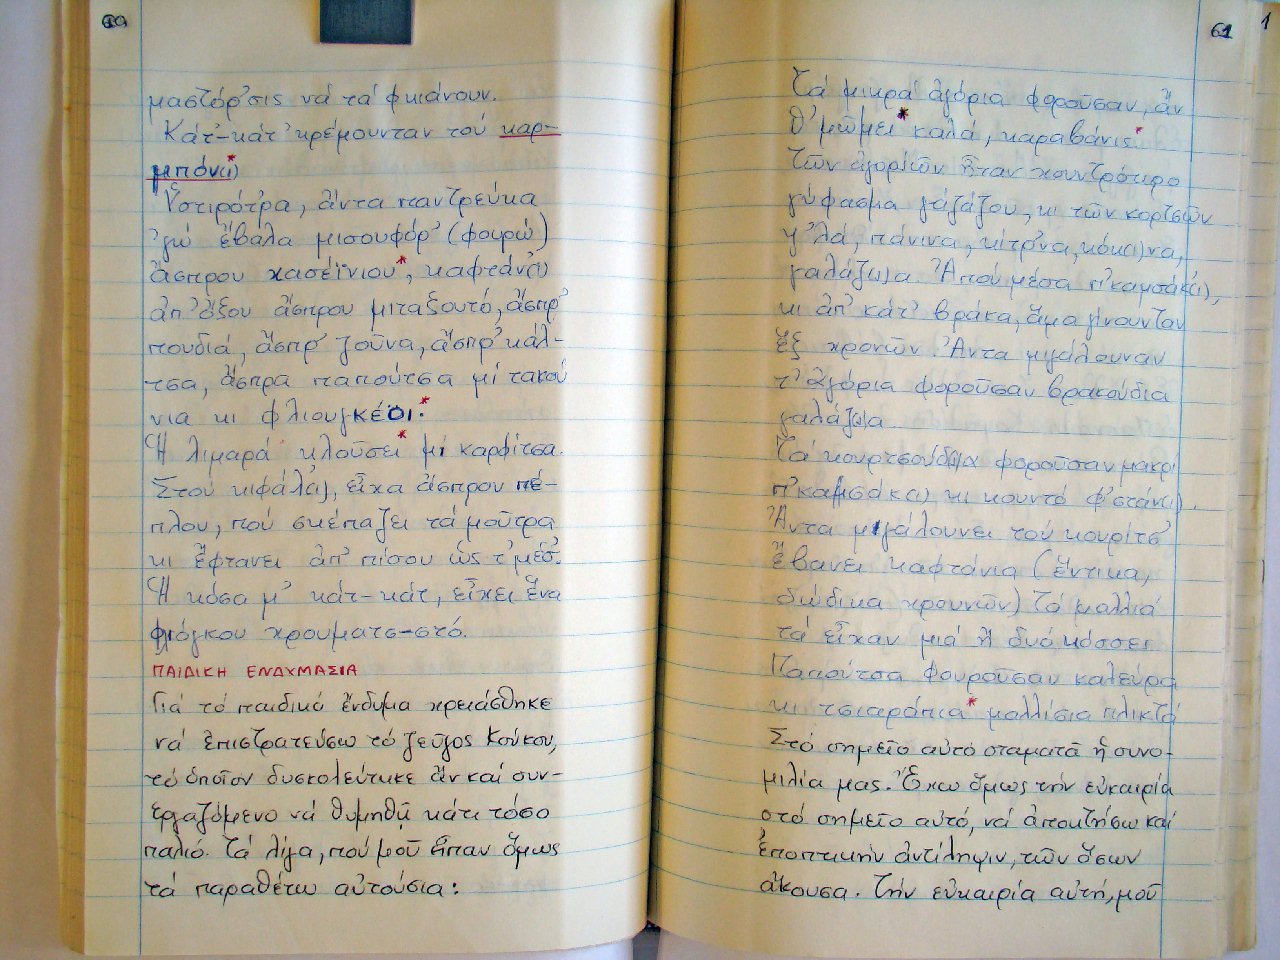 60
μαστόρ'σις νά τά φκιάνουν.
Κάτ'-κάτ' κρέμουνταν τού καρ-
μπόν(ι)*
Ὑστιρότρα, ἄντα παντρεύκα
'γώ ἔβαλα μισουφόρ' (φουρώ)
ἄσπρου χασέϊνιου*, καφτάν(ι)
ἀπ' ὄξου ἄσπρου μιταξουτό, ἄσπρ'
πουδιά, ἄσπρ' ζούνα, ἄσπρ' κάλ-
τσα, ἄσπρα παπούτσα μί τακού
νια κι φλιουγκέοι.*
Ἡ λιμαρά κλοῦσει* μί καρφίτσα.
Στού κιφάλ(ι), εἶχα ἄσπρου πέ-
πλου, πού σκέπαζει τά μοῦτρα
κι ἔφτανει ἀπ' πίσου ὡς τ' μέσ'.
Ἡ κόσα μ' κάτ-κάτ, εἶχει ἕνα
φιόγκου χρουματσ-στό.
ΠΑΙΔΙΚΗ ΕΝΔΥΜΑΣΙΑ
Γιά τό παιδικό ἔνδυμα χρειάσθηκε
νά ἐπιστρατεύσω τό ζεῦγος Κούκου,
τό ὁποῖον δυσκολεύτηκε ἄν καί συν-
εργαζόμενο νά θυμηθῇ κάτι τόσο
παλιό. Τά λίγα, πού μοῦ εἶπαν ὅμως
τά παραθέτω αὐτούσια:
61
1
Τά μικρά ἀγόρια φοροῦσαν, ἄν
θ'μῶμει* καλά, καραβάνις*.
Τῶν ἀγοριῶν ἦταν χουντρότιρο
γύφασμα γαζάζου, κι τῶν κορτσῶν
ψ'λά, πάνινα, κίτρ'να, κόκ(ι)να,
γαλάζ(ι)α. Ἀπού μέσα π'καμσάκ(ι),
κι ἀπ' κάτ' βράκα, ἅμα γίνουνταν
ἕξ χρονῶν. Ἄντα μιγάλουναν
τ' ἀγόρια φοροῦσαν βρακούδια
γαλάζ(ι)α.
Τά κουρτσούδια φοροῦσαν μακρύ
π'καμσάκ(ι) κι κουντό φ'στάν(ι).
Ἄντα μιγάλουνει τού κουρίτσ'
ἔβανει καφτάνια (ἕντικα,
δώδικα χρουνῶν) Τά μαλλιά
τά εἶχαν μιά ἤ δυό κόσσες
Παπούτσα φουροῦσαν καλεύρα
κι τσιαράπια* μαλλίσια πλικτά
Στό σημεῖο αὐτό σταματᾶ ἡ συνο-
μιλία μας. Ἔχω ὅμως τήν εὐκαιρία
στό σημεῖο αὐτό, νά ἀποκτήσω καί
ἐποπτικήν ἀντίληψιν, τῶν ὅσων
ἄκουσα. Τήν εὐκαιρία αὐτή, μοῦ